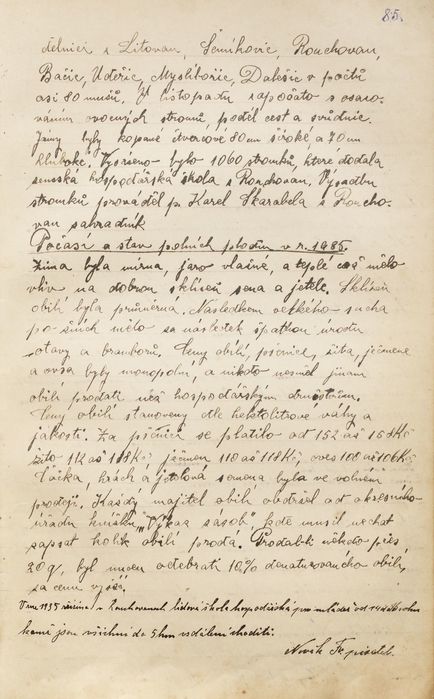 85.
dělníci z Litovan, Šemíkovic, Rouchovan,
Bačic, Udeřic, Myslibořic, Dalešic v počtu
asi 80 mužů. V listopadu započato s osazo-
váním ovocných stromů podél cest a svodnic.
Jámy byly kopané čtvercové 80 cm široké a 70 cm
hluboké. Vysázeno bylo 1060 stromků, které dodala
zemská hospodářská škola z Rouchovan, Výsadbu
stromků prováděl p. Karel Škarabela z Roucho-
van zahradník
Počasí a stav polních plodin v r. 1935.
Zima byla mírná, jaro vlažné, a teplé což mělo
vliv na dobrou sklizeň sena a jetele. Sklizeň
obilí byla průměrná. Následkem velkého sucha
po žních mělo za následek špatnou úrodu
otavy a bramborů. Ceny obilí, pšenice, žita, ječmene
a ovsa byly monopolní, a nikdo nesměl jinam
obilí prodati než hospodářským družstvům.
Ceny obilí stanoveny dle hektolitrové váhy a
jakosti. Za pšenici se platilo od 152 až 168 Kč
žito 112 až 118 Kč, ječmen 110 až 118 Kč, oves 108 až 106 Kč
Čočka, hrách a jetelová semena byla ve volném
prodeji. Každý majitel obilí obdržel od okresního
úřadu knížku „Výkaz zásob", kde musil nechat
zapsat kolik obilí prodá. Prodal-li někdo přes
20 q, byl nucen odebrati 10% denaturovaného obilí,
za cenu vyšší.
V roce 1935 zřízena v Rouchovanech lidová škola hospodářská pro mládež od 14
kamž jsou všichni do 5 km vzdálení choditi.
Novák Fr. písdel.